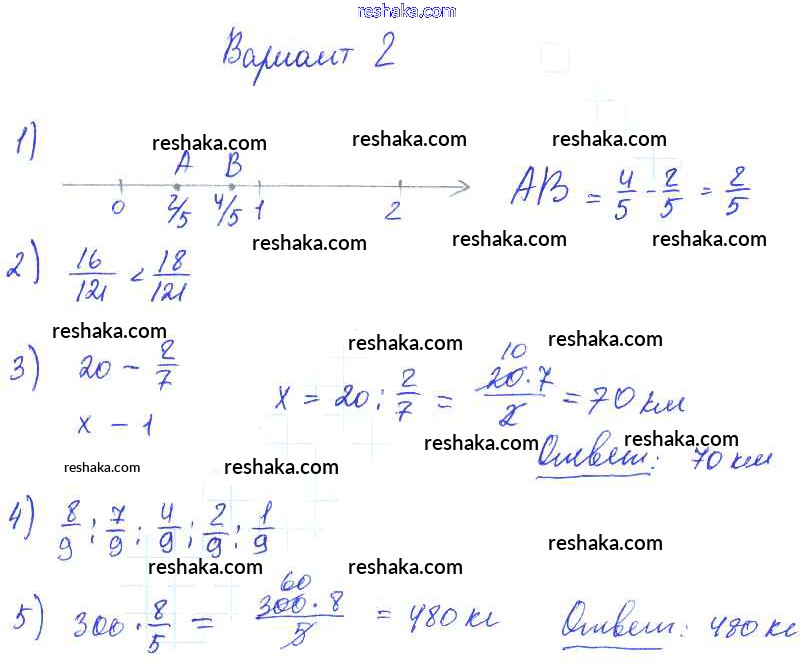 reshaka.com
Вариант 2
1)
reshaka.com reshaka.com reshaka.com
A B
0 2/5 4/5 1 2
AB = 4/5 - 2/5 = 2/5
reshaka.com reshaka.com reshaka.com
2) 16/121 < 18/121
reshaka.com reshaka.com reshaka.com
3) 20 - 2/7
x - 1
x = 20 : 2/7 = 20·7/2 = 70 км
10
reshaka.com reshaka.com reshaka.com reshaka.com
Ответ: 70 км
4) 8/9; 7/9; 4/9; 2/9; 1/9
reshaka.com reshaka.com reshaka.com
5) 300 · 8/5 = 300·8/5 = 480 кг
60
Ответ: 480 кг
reshaka.com reshaka.com reshaka.com